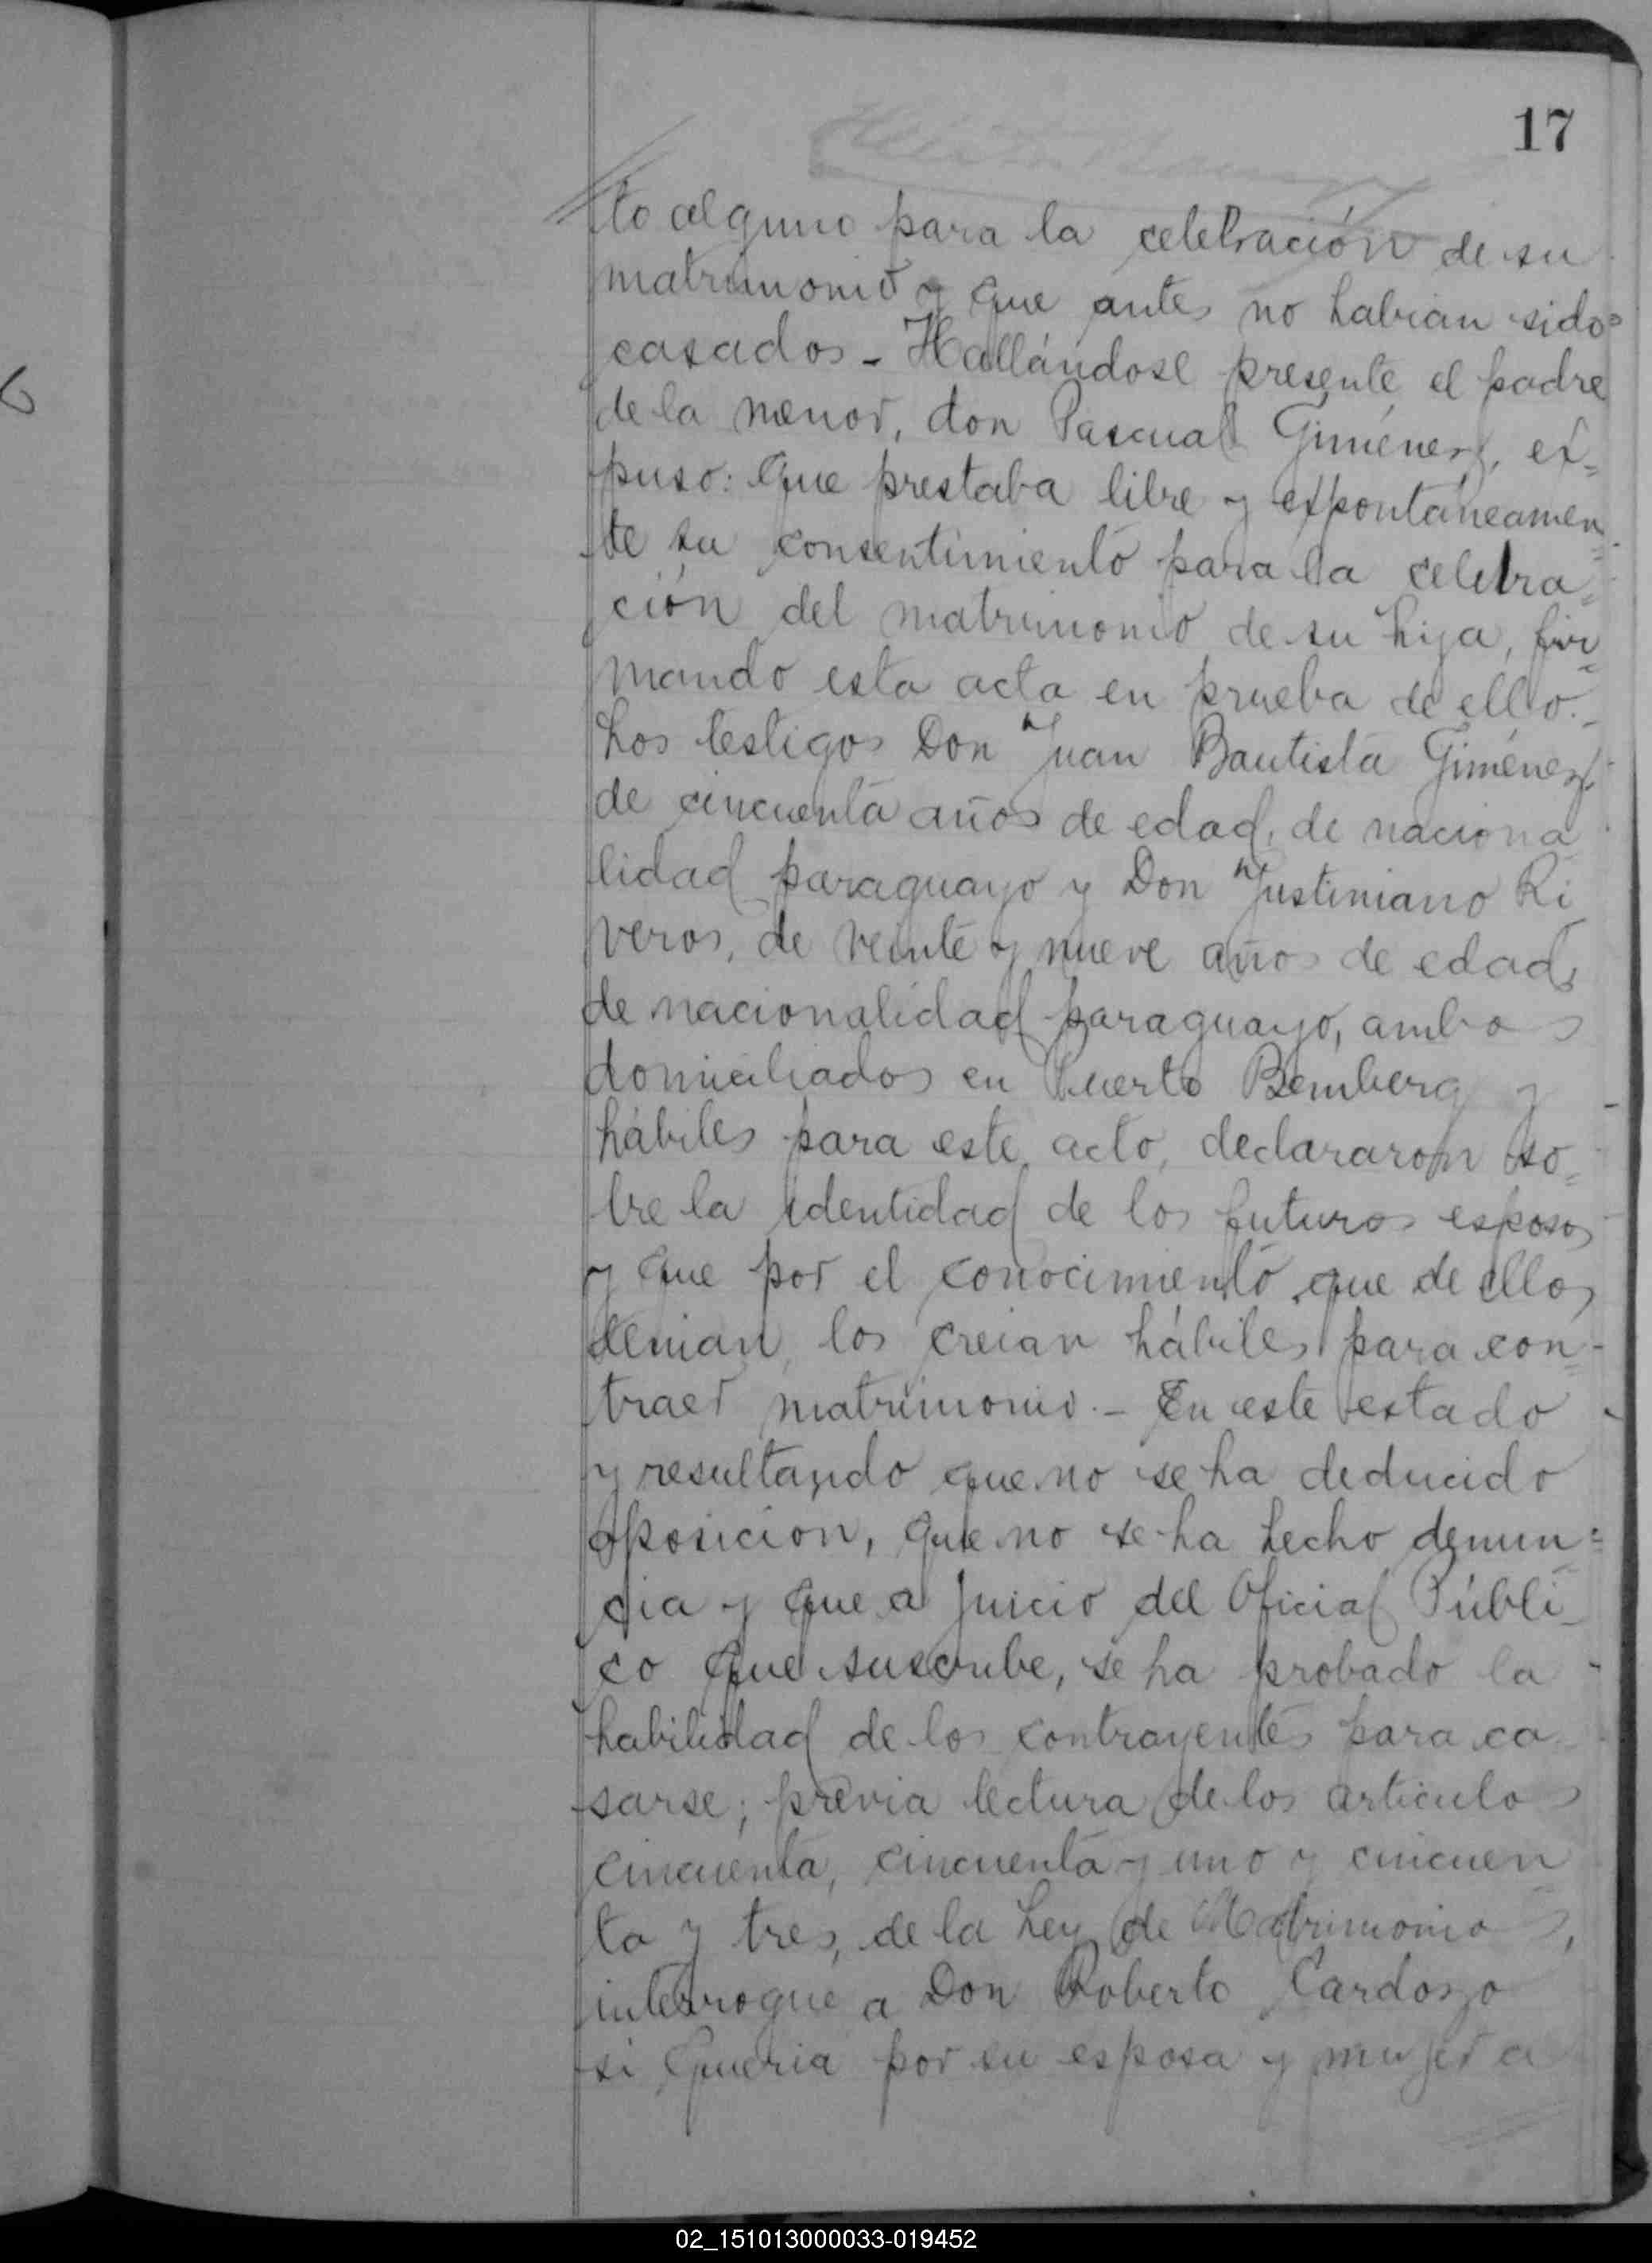 17
to alguno para la celebración de su
matrimonio y que antes no habian sido
casados - Hallándose presente el padre
de la menor, don Pascual Giménez, ex=
puso: que prestaba libre y expontáneamen=
te su consentimiento para la celebra=
ción del matrimonio de su hija, fir=
mando esta acta en prueba de ello.-
Los testigos Don Juan Bautista Giménez,
de cincuenta años de edad, de naciona
lidad paraguayo y Don Justiniano Ri
veros, de veinte y nueve años de edad,
de nacionalidad paraguayo, ambos
domiciliados en Puerto Bemberg y
hábiles para este acto, declararon so=
bre la identidad de los futuros esposos
y que por el conocimiento que de ellos
tenian, los creian hábiles para con=
traer matrimonio.- En este estado
y resultando que no se ha deducido
oposicion, que no se ha hecho denun=
cia y que a juicio del Oficial Públi_
co que suscribe, se ha probado la
habilidad de los contrayentes para ca_
sarse; previa lectura de los articulos
cincuenta, cincuenta y uno y cincuen
ta y tres, de la Ley de Matrimonios,
interrogue a Don Roberto Cardozo
si queria por su esposa y mujer a
02_151013000033-019452